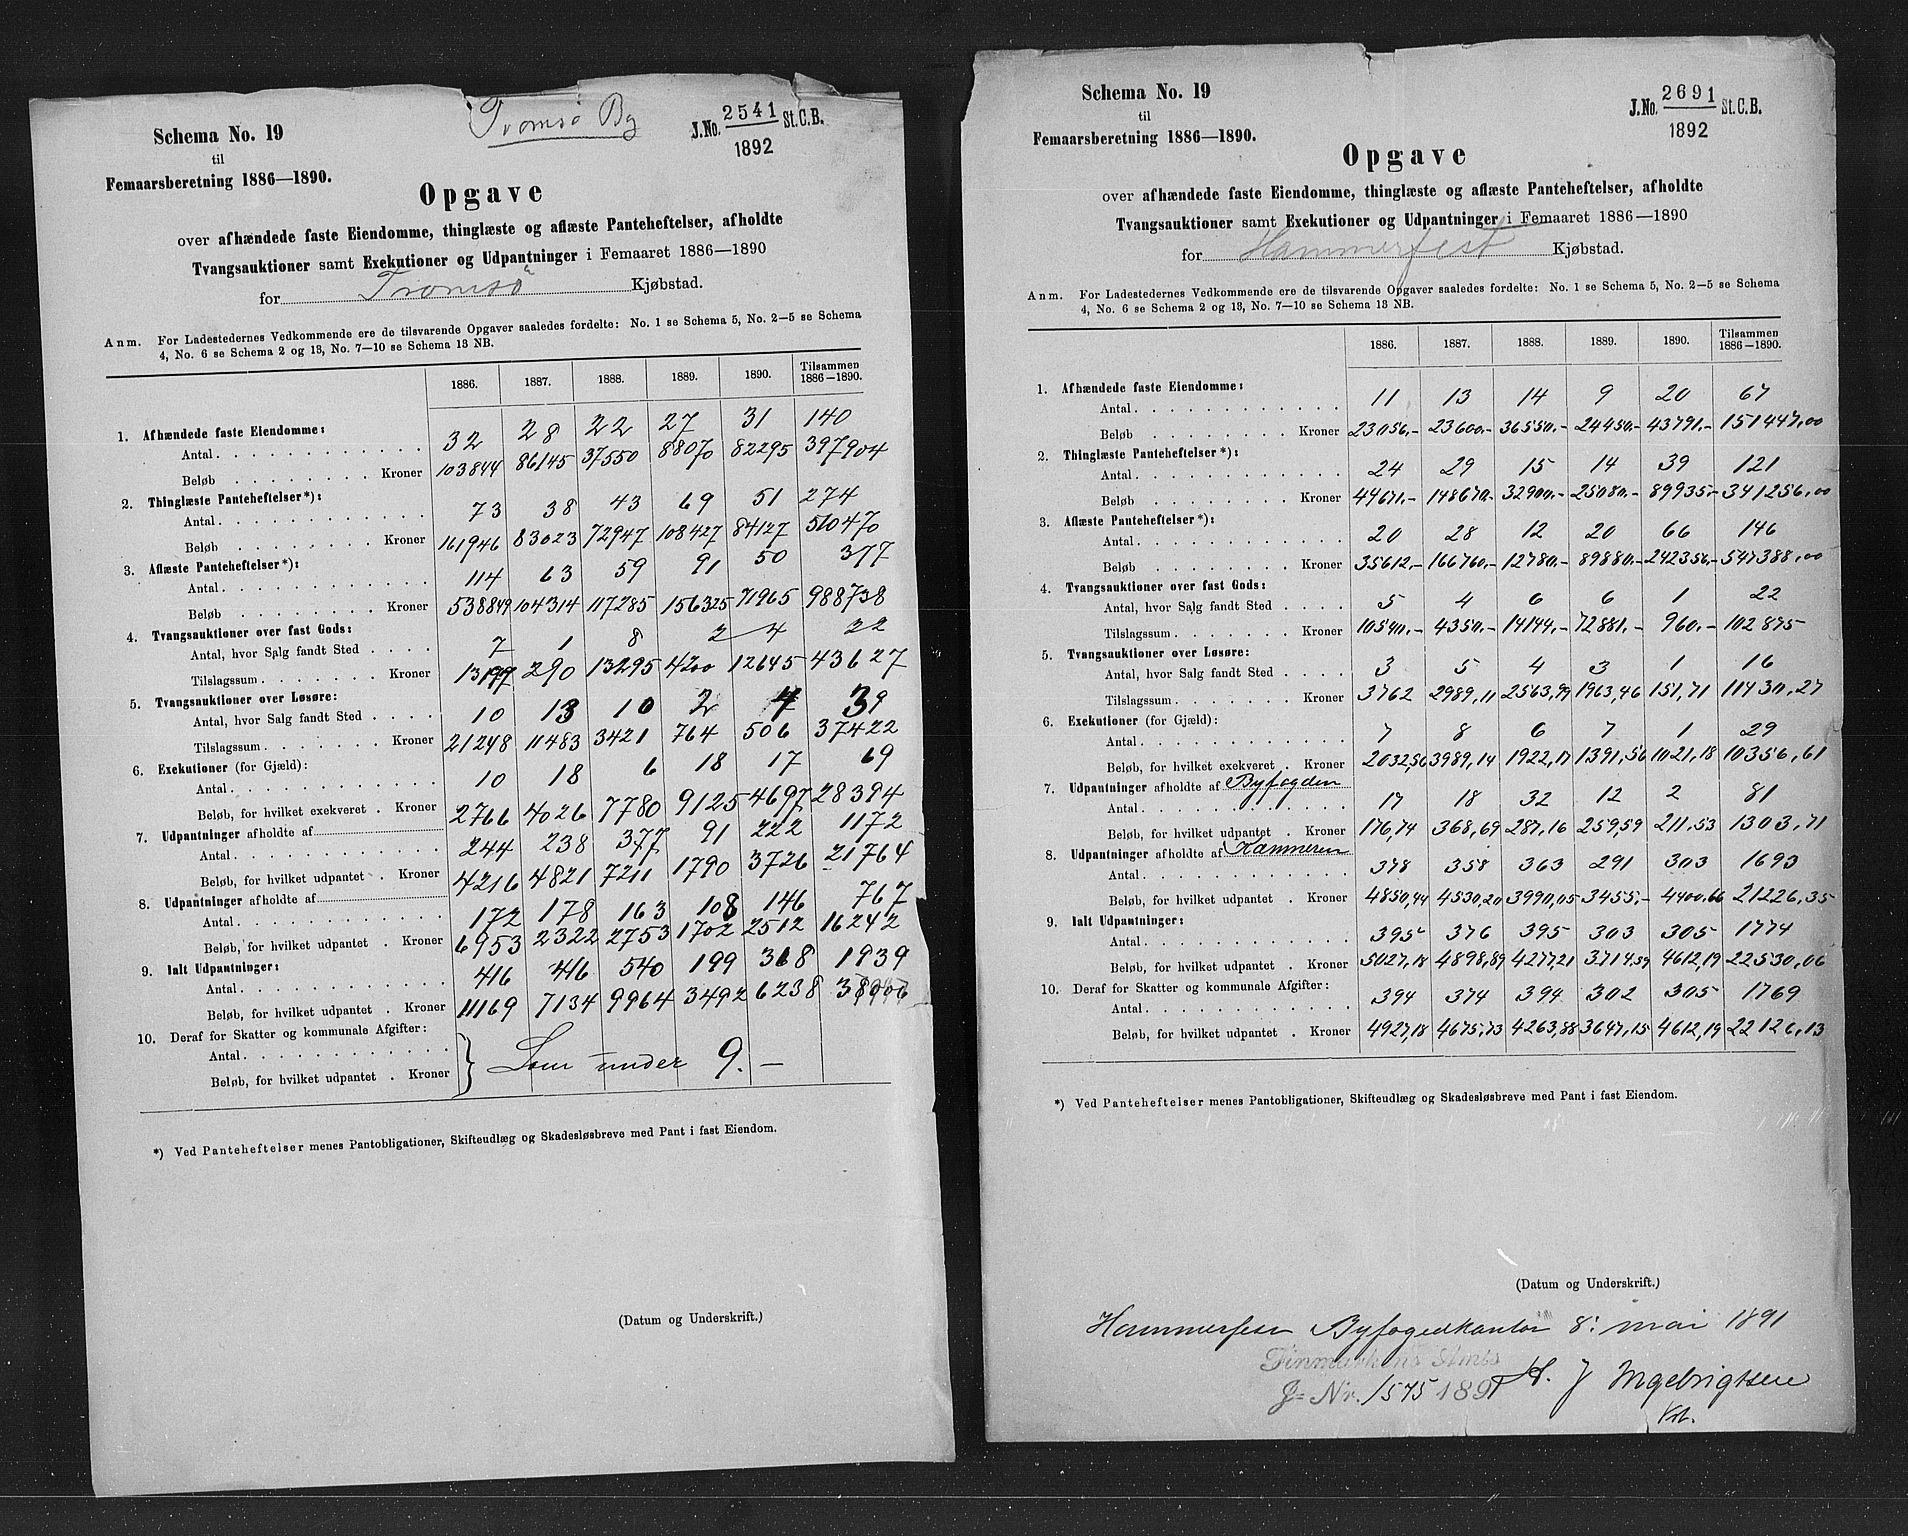 Tromsø By
Schema No. 19
til
Femaarsberetning 1886—1890.
J.No. 2541 St.C.B.
1892
Opgave
over afhændede faste Eiendomme, thinglæste og aflæste Panteheftelser, afholdte
Tvangsauktioner samt Exekutioner og Udpantninger i Femaaret 1886—1890
for Tromsø Kjøbstad.
Anm. For Ladestedernes Vedkommende ere de tilsvarende Opgaver saaledes fordelte: No. 1 se Schema 5, No. 2—5 se Schema
4, No. 6 se Schema 2 og 13, No. 7—10 se Schema 13 NB.
1886. 1887. 1888. 1889. 1890. Tilsammen 1886—1890.
1. Afhændede faste Eiendomme:
Antal 32 28 22 27 31 140
Beløb Kroner 103844 86145 37550 88070 82295 397904
2. Thinglæste Panteheftelser*):
Antal 73 38 43 69 51 274
Beløb Kroner 161946 83023 72947 108427 84127 510470
3. Aflæste Panteheftelser*):
Antal 114 63 59 91 50 377
Beløb Kroner 538849 104314 117285 156325 71965 988738
4. Tvangsauktioner over fast Gods:
Antal, hvor Salg fandt Sted 7 1 8 2 4 22
Tilslagssum Kroner 13197 290 13295 4200 12645 43627
5. Tvangsauktioner over Løsøre:
Antal, hvor Salg fandt Sted 10 13 10 2 4 39
Tilslagssum Kroner 21248 11483 3421 764 506 37422
6. Exekutioner (for Gjæld):
Antal 10 18 6 18 17 69
Beløb, for hvilket exekveret Kroner 2766 4026 7780 9125 4697 28394
7. Udpantninger afholdte af
Antal 244 238 377 91 222 1172
Beløb, for hvilket udpantet Kroner 4216 4821 7211 1790 3726 21764
8. Udpantninger afholdte af
Antal 172 178 163 108 146 767
Beløb, for hvilket udpantet Kroner 6953 2322 2753 1702 2512 16242
9. Ialt Udpantninger:
Antal 416 416 540 199 368 1939
Beløb, for hvilket udpantet Kroner 11169 7134 9964 3492 6238
10. Deraf for Skatter og kommunale Afgifter:
Antal
Beløb, for hvilket udpantet Kroner } Som under 9. —
*) Ved Panteheftelser menes Pantobligationer, Skifteudlæg og Skadesløsbreve med Pant i fast Eiendom.
(Datum og Underskrift.)
Schema No. 19
til
Femaarsberetning 1886—1890.
J.No. 2691 St.C.B.
1892
Opgave
over afhændede faste Eiendomme, thinglæste og aflæste Panteheftelser, afholdte
Tvangsauktioner samt Exekutioner og Udpantninger i Femaaret 1886—1890
for Hammerfest Kjøbstad.
Anm. For Ladestedernes Vedkommende ere de tilsvarende Opgaver saaledes fordelte: No. 1 se Schema 5, No. 2—5 se Schema
4, No. 6 se Schema 2 og 13, No. 7—10 se Schema 13 NB.
1886. 1887. 1888. 1889. 1890. Tilsammen 1886—1890.
1. Afhændede faste Eiendomme:
Antal 11 13 14 9 20 67
Beløb Kroner 23056,- 23600,- 36550,- 24450,- 43791,- 151447,00
2. Thinglæste Panteheftelser*):
Antal 24 29 15 14 39 121
Beløb Kroner 44671,- 148670,- 32900,- 25080,- 89935,- 341256,00
3. Aflæste Panteheftelser*):
Antal 20 28 12 20 66 146
Beløb Kroner 35612,- 166760,- 12780,- 89880,- 242356,- 547388,00
4. Tvangsauktioner over fast Gods:
Antal, hvor Salg fandt Sted 5 4 6 6 1 22
Tilslagssum Kroner 10540,- 4350,- 14144,- 72881,- 960,- 102875-
5. Tvangsauktioner over Løsøre:
Antal, hvor Salg fandt Sted 3 5 4 3 1 16
Tilslagssum Kroner 3762 2989,11 2563,99 1963,46 151,71 11430,27
6. Exekutioner (for Gjæld):
Antal 7 8 6 7 1 29
Beløb, for hvilket exekveret Kroner 2032,56 3989,14 1922,17 1391,56 1021,18 10356,61
7. Udpantninger afholdte af Byfogden
Antal 17 18 32 12 2 81
Beløb, for hvilket udpantet Kroner 176,74 368,69 287,16 259,59 211,53 1303,71
8. Udpantninger afholdte af Kæmneren
Antal 378 358 363 291 303 1693
Beløb, for hvilket udpantet Kroner 4850,44 4530,20 3990,05 3455,- 4400.66 21226,35
9. Ialt Udpantninger:
Antal 395 376 395 303 305 1774
Beløb, for hvilket udpantet Kroner 5027,18 4898,89 4277,21 3714,59 4612,19 22530,06
10. Deraf for Skatter og kommunale Afgifter:
Antal 394 374 394 302 305 1769
Beløb, for hvilket udpantet Kroner 4927,18 4675,73 4263,88 3647,15 4612,19 22126,13
*) Ved Panteheftelser menes Pantobligationer, Skifteudlæg og Skadesløsbreve med Pant i fast Eiendom.
(Datum og Underskrift.)
Hammerfest Byfogedkontor 8: mai 1891
Finmarkens Amts
J= Nr. 1575 1891
H. J Ingebrigtsen